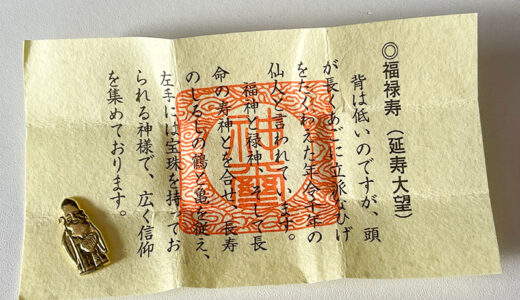 ◎福禄寿（延寿大望）
背は低いのですが、頭
が長くあごに立派なひげ
をたくわえた年令千年の
仙人と言われています。
福神と禄神、そして長
命の寿神とを合せ、長寿
のしるしの鶴と亀を従え、
左手には宝珠を持ってお
られる神様で、広く信仰
を集めております。